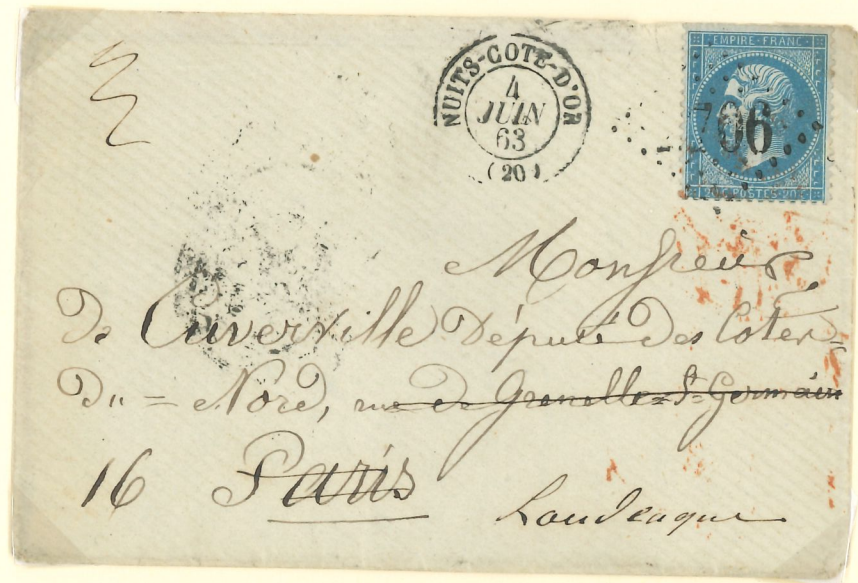 NUITS-COTE-D'OR
4
JUIN
63
(20)
EMPIRE-FRANC
706
20 POSTES 20
Monsieur
de Cuverville Député des Côtes
du = Nord, rue de Grenelle = St Germain
16 Paris
Loudeaque